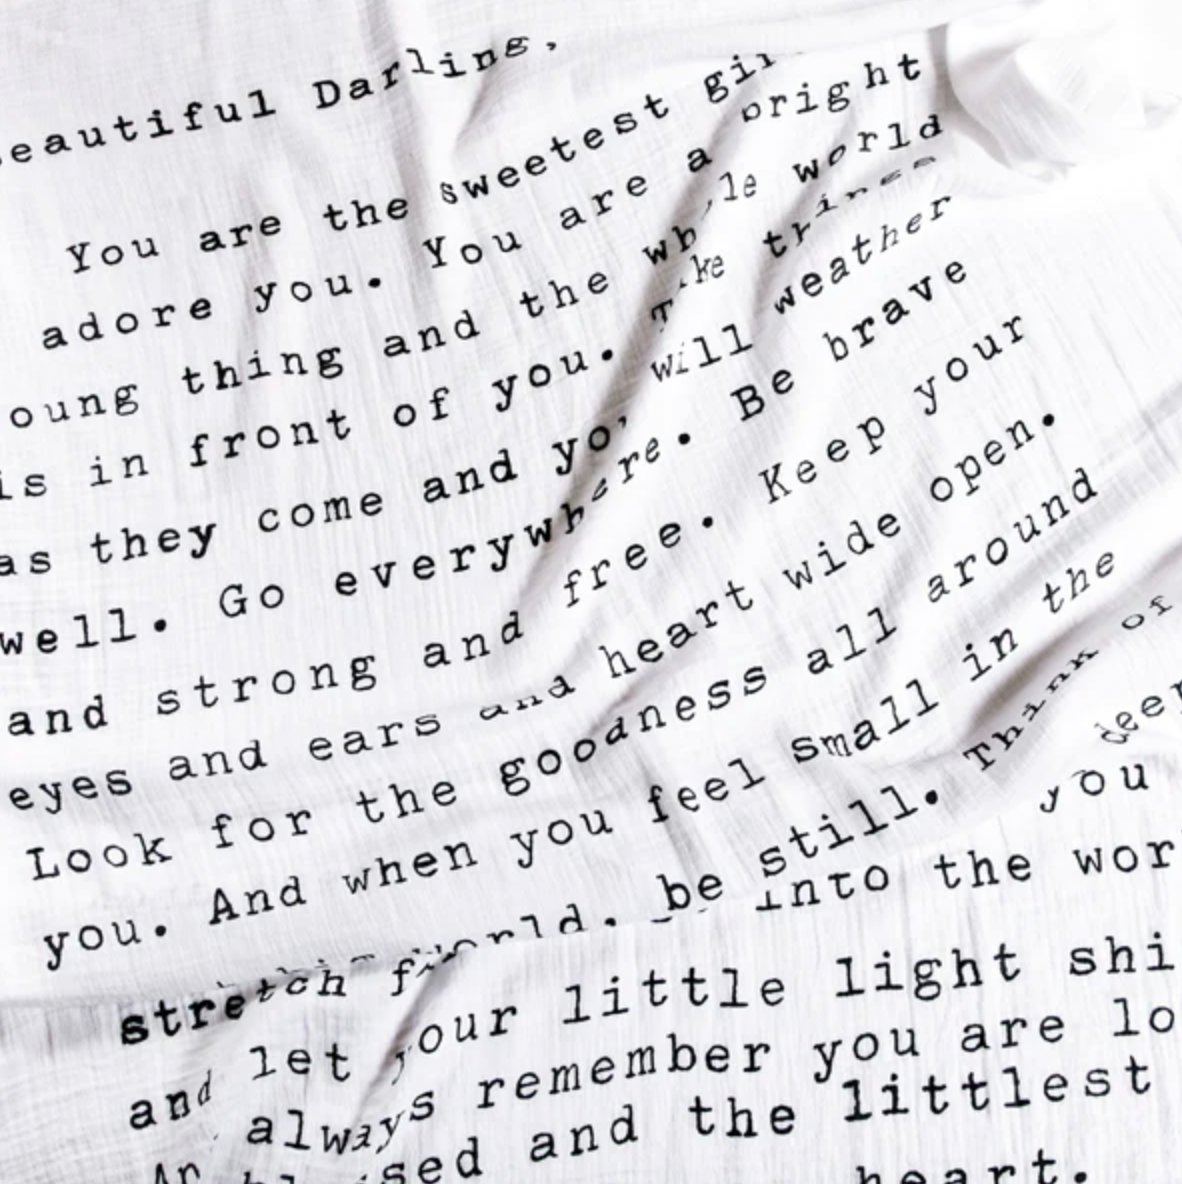 eautiful Darling,
You are the sweetest gir
adore you. You are a bright
oung thing and the whole world
is in front of you. Take things
as they come and you will weather
well. Go everywhere. Be brave
and strong and free. Keep your
eyes and ears and heart wide open.
Look for the goodness all around
you. And when you feel small in the
world, be still. Think of
deep
stretch f into the wor
you
and let your little light shi
always remember you are lo
sed and the littlest
heart.